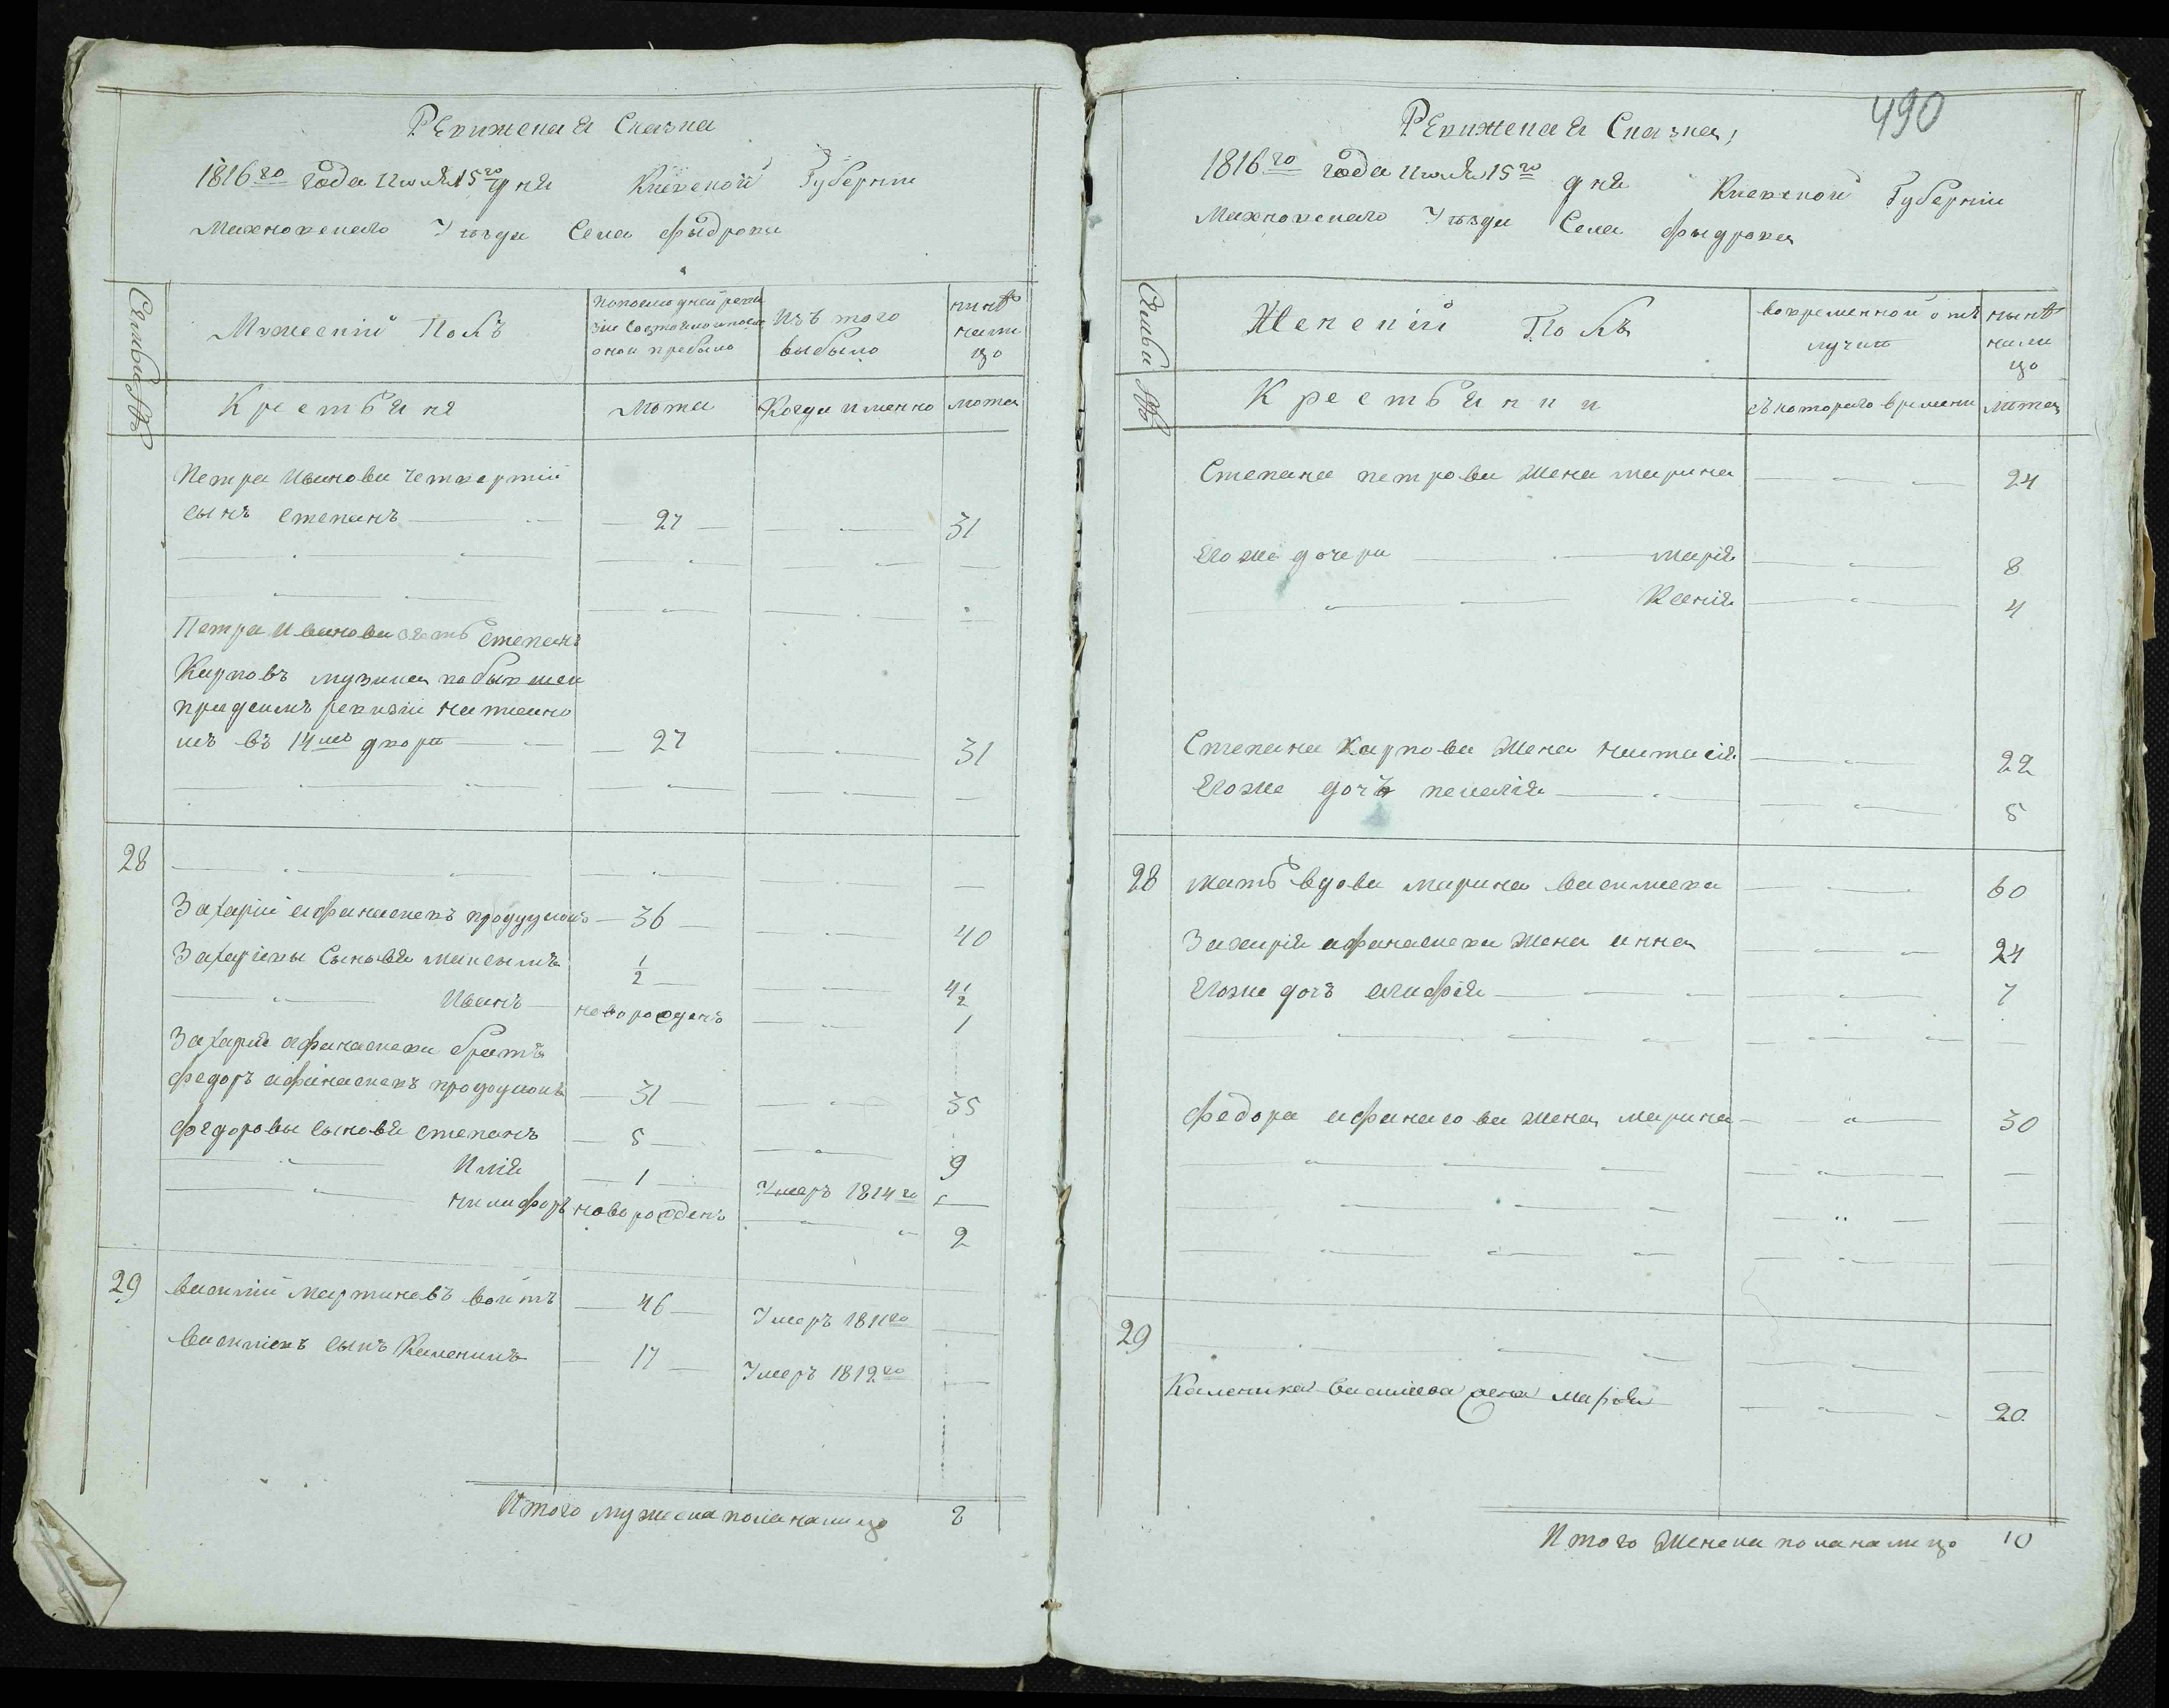 Ревижская Сказка
1816го года Июля 15го дня Киевской Губернии
Махновскаго Уезда Села Фыдровки
Семьи №
Мужеский Полъ
По последней ревизии состояло и после оной прибыло
Изъ того выбыло
ныне на лицо
Крестьяня
Лета
Когда именно
лета
Петра Иванова четвертий
сынъ степанъ 27 31
Петра Иванова зять степанъ
Карповъ
при
въ 14мъ дворе 27 31
28
Захарий афанасиевъ 36 40
Захариевы Сыновя максымъ 1/2 4 1/2
Иванъ новорожденъ 1
Захария афанасиева братъ
федоръ афанасиевъ 31 35
федоровы сыновя степанъ 5 9
Илия 1 Умеръ 1814го
никифоръ новорожденъ 2
29 василий мартиновъ войтъ 46 Умеръ 1811го
василиевъ сынъ Каленикъ 17 Умеръ 1812го
Итого мужеска пола налицо 8
490
Ревижская Сказка,
1816го года Июля 15го дня Киевской Губернии
Махновскаго Уезда Села Фыдровки
Семьи №
Женский Полъ
во временной отлучке
ныне на лицо
Крестьянки
съ котораго времени
лета
Степана петрова жена марина 24
Егоже дочери мария 8
Ксения 4
Степана Карпова жена настасия 22
Егоже дочъ пелагия 5
28 мать вдова марина василиева 60
Захария афанасиева жена анна 24
Егоже дочъ агафия 7
федора афанасова жена марина 30
29
Каленика василева жена мария 20
Итого женска пола налицо 10